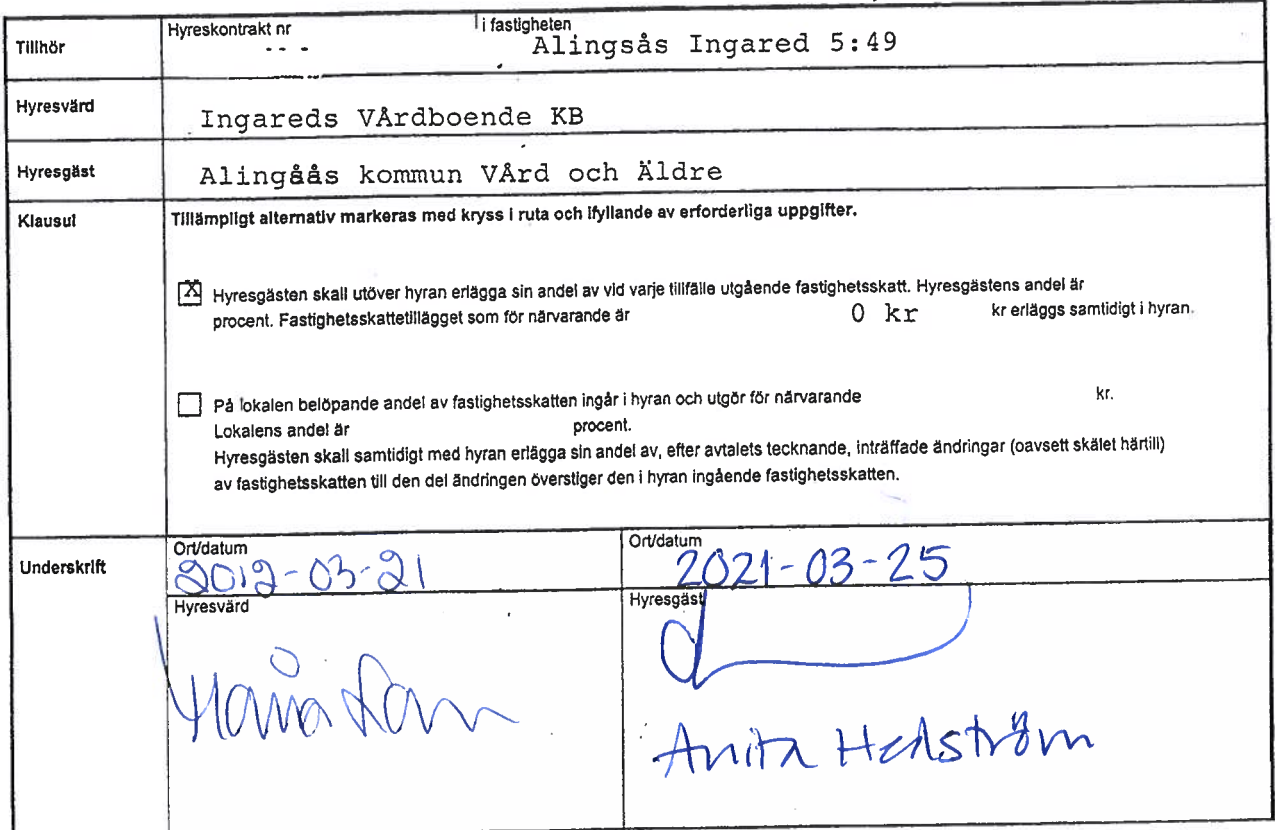 Tillhör
Hyreskontrakt nr
- - -
i fastigheten
Alingsås Ingared 5:49
Hyresvärd
Ingareds VÅrdboende KB
Hyresgäst
Alingåås kommun VÅrd och Äldre
Klausul
Tillämpligt alternativ markeras med kryss i ruta och ifyllande av erforderliga uppgifter.
X Hyresgästen skall utöver hyran erlägga sin andel av vid varje tillfälle utgående fastighetsskatt. Hyresgästens andel är
procent. Fastighetsskattetillägget som för närvarande är 0 kr kr erläggs samtidigt i hyran.
På lokalen belöpande andel av fastighetsskatten ingår i hyran och utgör för närvarande kr.
Lokalens andel är procent.
Hyresgästen skall samtidigt med hyran erlägga sin andel av, efter avtalets tecknande, inträffade ändringar (oavsett skälet härtill)
av fastighetsskatten till den del ändringen överstiger den i hyran ingående fastighetsskatten.
Underskrift
Ort/datum
2012-03-21
Ort/datum
2021-03-25
Hyresvärd
Hyresgäst
Anita Hedström